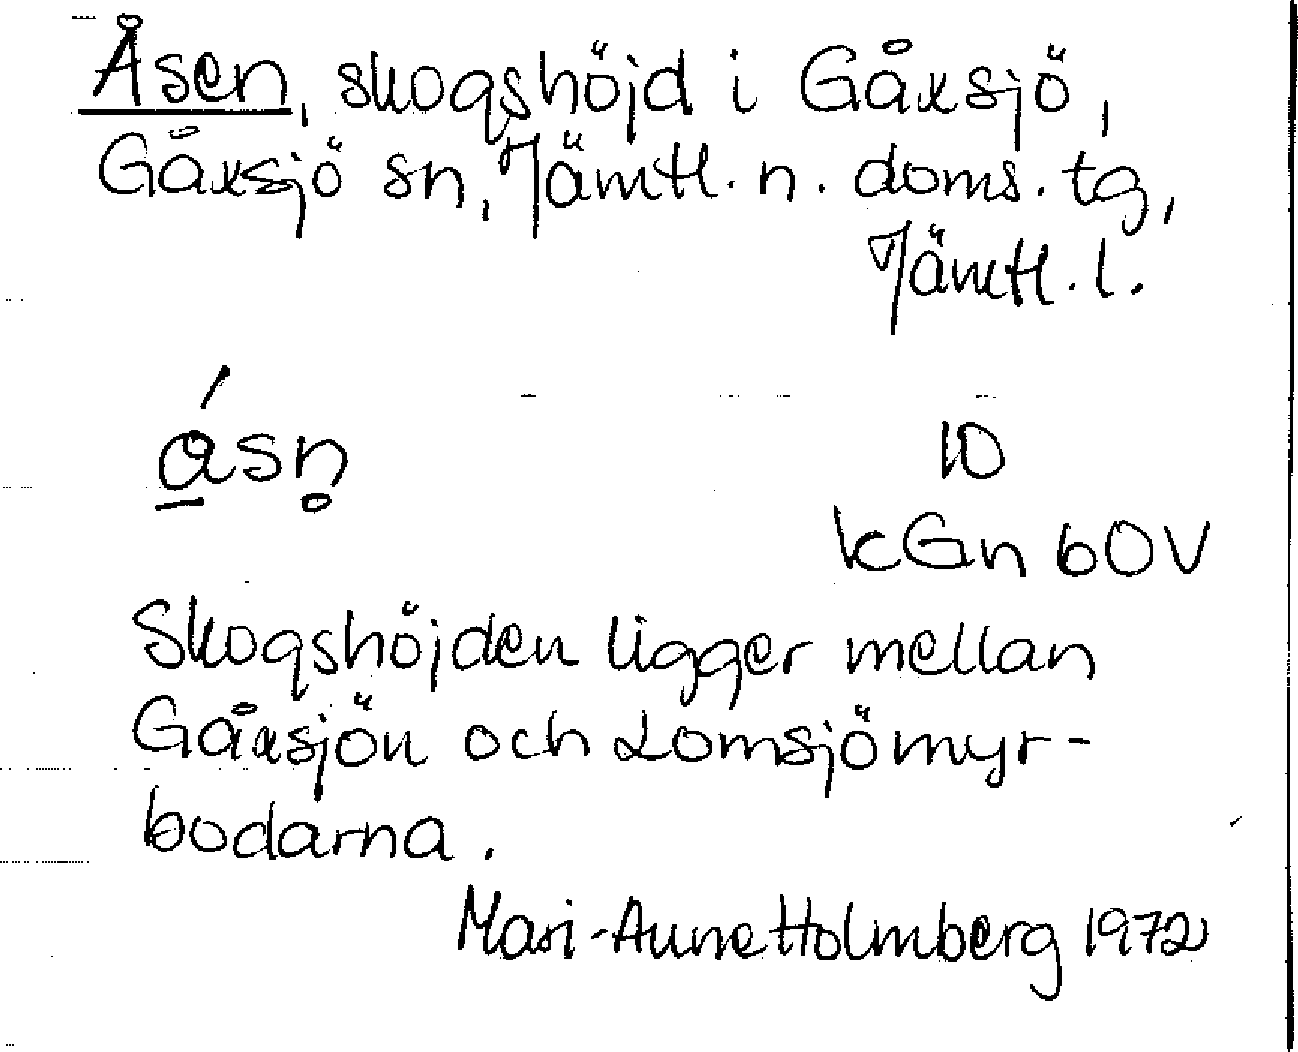 Åsen, skogshöjd i Gåxsjö,
Gåxsjö sn, Jämtl. n. doms. tg,
Jämtl. l.
á̱sn̥
10
kGn 60V
Skogshöjden ligger mellan
Gåxsjön och Lomsjömyr-
bodarna.
Mari-Anne Holmberg 1972